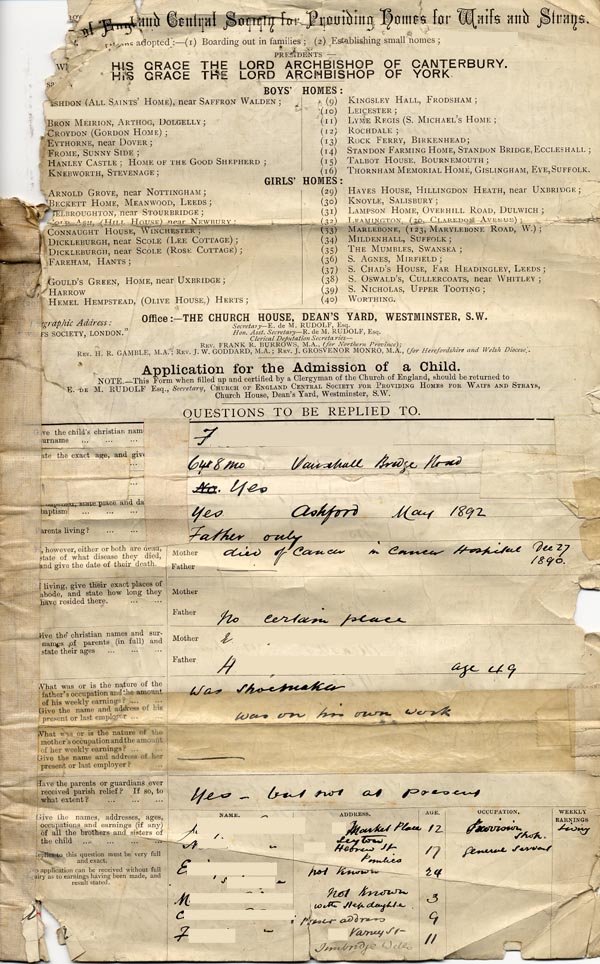 of England Central Society for Providing Homes for Waifs and Strays.
adopted:—(1) Boarding out in families; (2) Establishing small homes;
PRESIDENTS—
HIS GRACE THE LORD ARCHBISHOP OF CANTERBURY.
HIS GRACE THE LORD ARCHBISHOP OF YORK.
BOYS' HOMES:
ASHDON (ALL SAINTS' HOME), near SAFFRON WALDEN;
BRON MEIRION, ARTHOG, DOLGELLY;
CROYDON (GORDON HOME);
EYTHORNE, near DOVER;
FROME, SUNNY SIDE;
HANLEY CASTLE; HOME OF THE GOOD SHEPHERD;
KNEBWORTH, STEVENAGE;
(9) KINGSLEY HALL, FRODSHAM;
(10) LEICESTER;
(11) LYME REGIS (S. MICHAEL'S HOME;
(12) ROCHDALE;
(13) ROCK FERRY, BIRKENHEAD;
(14) STANDON FARMING HOME, STANDON BRIDGE, ECCLESHALL;
(15) TALBOT HOUSE, BOURNEMOUTH;
(16) THORNHAM MEMORIAL HOME, GISLINGHAM, EYE, SUFFOLK.
GIRLS' HOMES:
ARNOLD GROVE, near NOTTINGHAM;
BECKETT HOME, MEANWOOD, LEEDS;
BELBROUGHTON, near STOURBRIDGE;
COLD ASH, (HILL HOUSE) near NEWBURY;
CONNAUGHT HOUSE, WINCHESTER;
DICKLEBURGH, near SCOLE (LEE COTTAGE);
DICKLEBURGH, near SCOLE (ROSE COTTAGE);
FAREHAM, HANTS;
GOULD'S GREEN, HOME, near UXBRIDGE;
HARROW
HEMEL HEMPSTEAD, (OLIVE HOUSE,) HERTS;
(29) HAYES HOUSE, HILLINGDON HEATH, near UXBRIDGE;
(30) KNOYLE, SALISBURY;
(31) LAMPSON HOME, OVERHILL ROAD, DULWICH;
(32) LEAMINGTON, (30, CLARENDON AVENUE);
(33) MARLEBONE, (123, MARYLEBONE ROAD, W.);
(34) MILDENHALL, SUFFOLK;
(35) THE MUMBLES, SWANSEA;
(36) S. AGNES, MIRFIELD;
(37) S. CHAD'S HOUSE, FAR HEADINGLEY, LEEDS;
(38) S. OSWALD'S, CULLERCOATS, near WHITLEY;
(39) S. NICHOLAS, UPPER TOOTING;
(40) WORTHING.
Office:—THE CHURCH HOUSE, DEAN'S YARD, WESTMINSTER, S.W.
graphic Address:
SOCIETY, LONDON."
Secretary—E. de M. RUDOLF, Esq.
Hon. Asst. Secretary—R. de M. RUDOLF, Esq.
Clerical Deputation Secretaries—
REV. FRANK R. BURROWS, M.A., (for Northern Province);
REV. H. R. GAMBLE, M.A.; REV. J. W. GODDARD, M.A.; REV. J. GROSVENOR MONRO, M.A., (for Herefordshire and Welsh Diocese).
Application for the Admission of a Child.
NOTE.—This Form when filled up and certified by a Clergyman of the Church of England, should be returned to
E. DE M. RUDOLF Esq., Secretary, CHURCH OF ENGLAND CENTRAL SOCIETY FOR PROVIDING HOMES FOR WAIFS AND STRAYS,
Church House, Dean's Yard, Westminster, S.W.
QUESTIONS TO BE REPLIED TO.
Give the child's christian nam
surname ... ... ...
F
state the exact age, and give
6 yrs 8 mo Vauxhall Bridge Road
No. Yes
baptized, state place and da
baptism) ... ... ...
Yes Ashford May 1892
Parents living? ... ...
Father only
If, however, either or both are dead,
state of what disease they died,
and give the date of their death.
Mother
died of Cancer in Cancer Hospital Dec 27
1890.
Father
If living, give their exact places of
abode, and state how long they
have resided there. ... ...
Mother
Father
No certain place
Give the christian names and sur-
names of parents (in full) and
state their ages ... ...
Mother
E
Father
H age 49
What was or is the nature of the
father's occupation and the amount
of his weekly earnings? ... ...
Give the name and address of his
present or last employer ...
was Shoemaker
was on his own work
What was or is the nature of the
mother's occupation and the amount
of her weekly earnings? ...
Give the name and address of her
present or last employer?
Have the parents or guardians ever
received parish relief? If so, to
what extent? ... ... ...
Yes - but not at present
Give the names, addresses, ages,
occupations and earnings (if any)
of all the brothers and sisters of
the child ... ... ...
Replies to this question must be very full
and exact.
application can be received without full
as to earnings having been made, and
result stated.
NAME. ADDRESS. AGE. OCCUPATION, WEEKLY EARNINGS
Market Place 12 Provision Shop.
Leyton
Hebrew St 17 General Servant
E " not known 24
M not known 3
with Stepdaughter
C " address 9
F Varney St 11
Tunbridge Wells